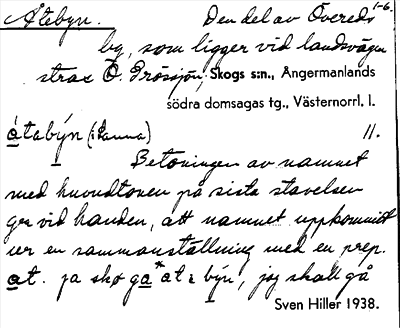 Åtebyn. Den del av Övereds 1-6.
by, som ligger vid landsvägen
strax Ö. Prössjön, Skogs s:n., Ångermanlands
södra domsagas tg., Västernorrl. l.
åtabýn (: Panna) 11.
Betoningen av namnet
med huvudtonen på sista stavelsen
ger vid handen, att namnet uppkommit
ur en sammanställning med en prep.
at. ja ska ga at : býn, jag skall gå
Sven Hiller 1938.